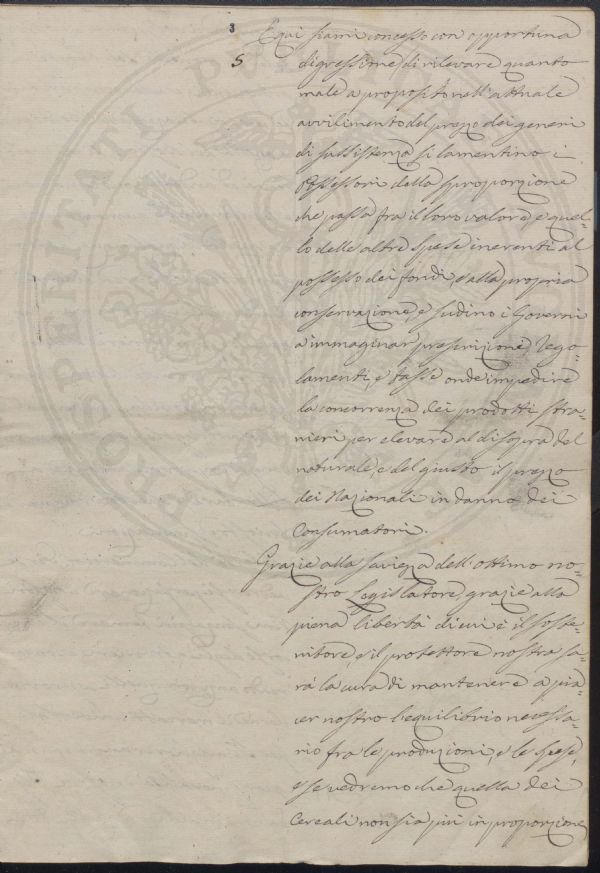 3
E qui siami concesso con opportuna
5
digressione di rilevare quanto
male a proposito nell'attuale
avvilimento del prezzo dei generi
di sussistenza si lamentino i
Possessori della sproporzione
che passa fra il loro valore, e quel-
lo delle altre spese inerenti al
possesso dei fondi, e alla propria
conservazione, e sudino i Governi
a immaginar prescrizioni, Rego-
lamenti, e tasse onde impedire
la concorrenza dei prodotti stra-
nieri per elevare al disopra del
naturale, e del giusto il prezzo
dei Nazionali in danno dei
Consumatori.
Grazie alla saviezza dell'ottimo no-
stro Legislatore, grazie alla
piena libertà di cui è il soste-
nitore, e il protettore nostra sa-
rà la cura di mantenere a pia-
cer nostro l'equilibrio necessa-
rio fra le produzioni, e le spese,
e se vedremo che quella dei
Cereali non sia più in proporzione
PROSPERITATI PVBLICAE